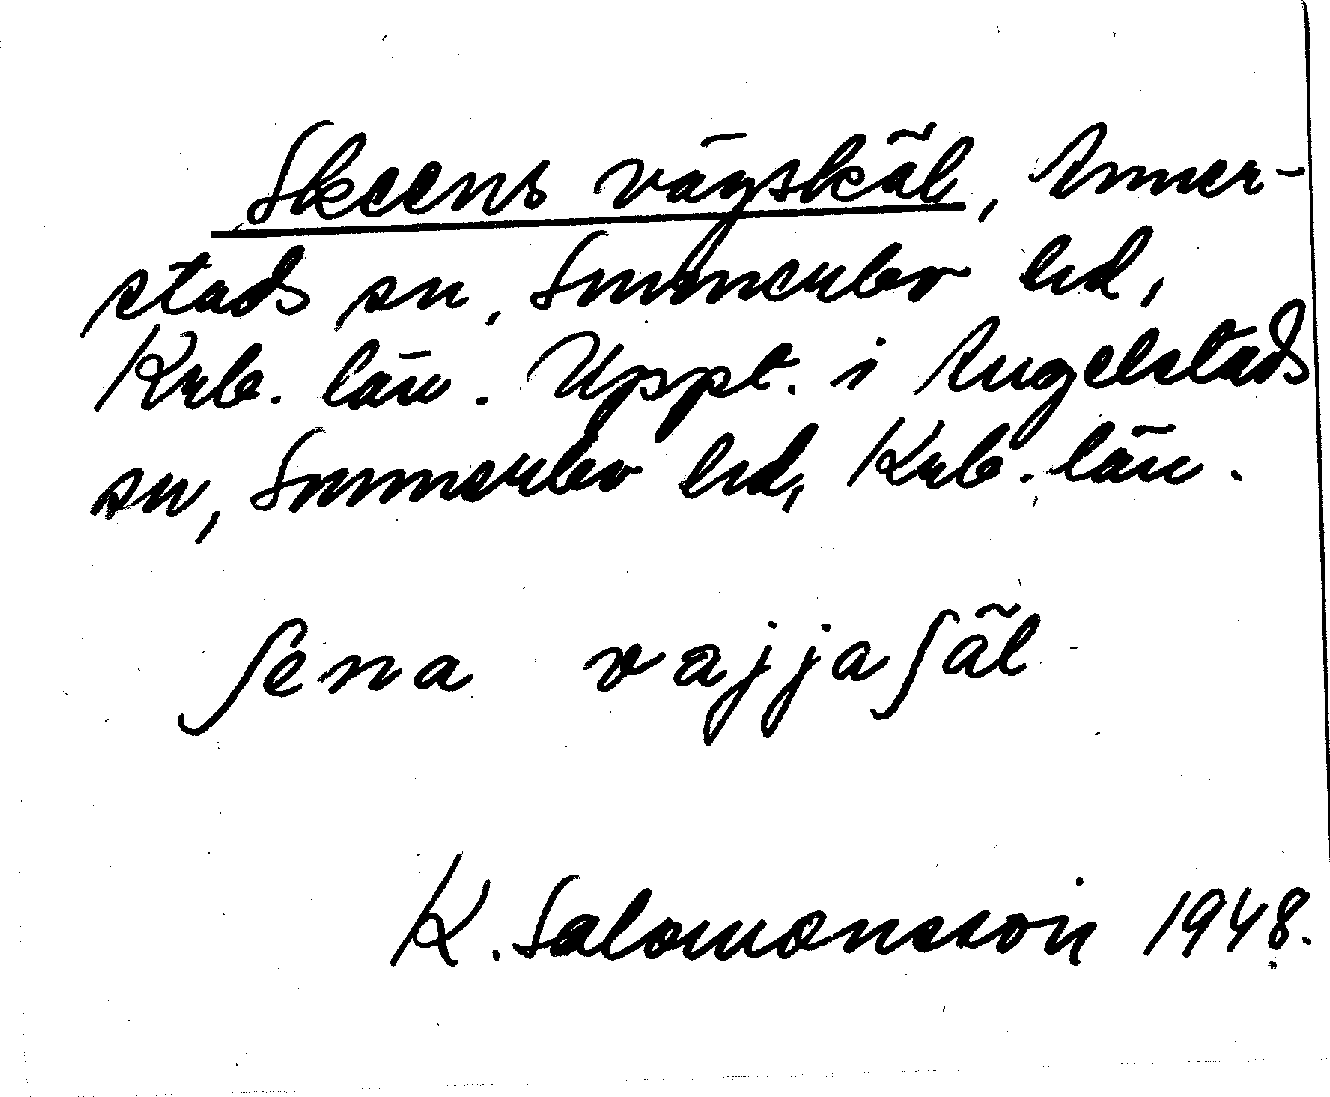 Skeens vägskäl, Anner-
stads sn, Sunnerbo hd,
Krb. län. Uppt. i Angelstads
sn, Sunnerbo hd, Krb. län.
ʃena vajjaʃäl
K. Salomonsson 1948.